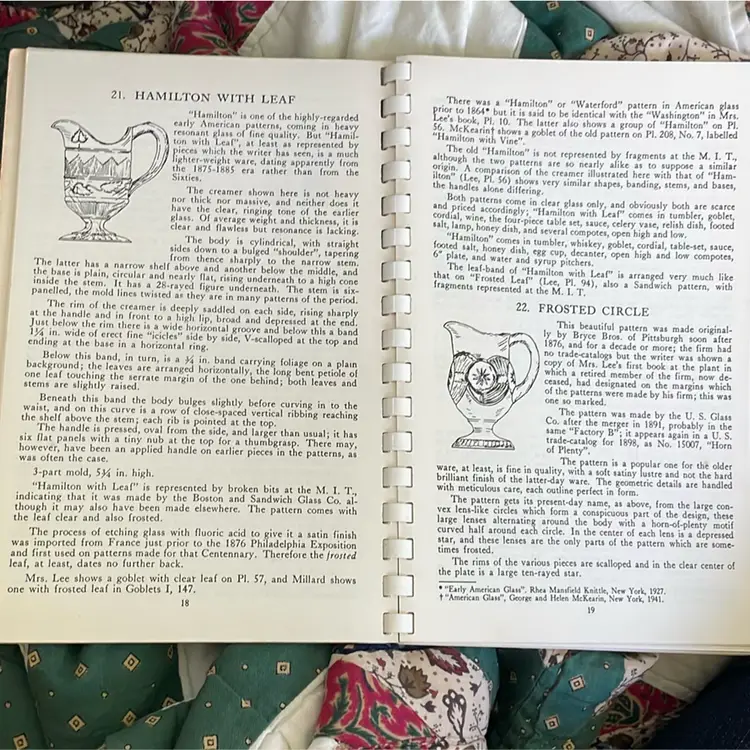 21. HAMILTON WITH LEAF
"Hamilton" is one of the highly-regarded
early American patterns, coming in heavy
resonant glass of fine quality. But "Hamil-
ton with Leaf", at least as represented by
pieces which the writer has seen, is a much
lighter-weight ware, dating apparently from
the 1875-1885 era rather than from the
Sixties.
The creamer shown here is not heavy
nor thick nor massive, and neither does it
have the clear, ringing tone of the earlier
glass. Of average weight and thickness, it is
clear and flawless but resonance is lacking.
The body is cylindrical, with straight
sides down to a bulged "shoulder", tapering
from thence sharply to the narrow stem.
The latter has a narrow shelf above and another below the middle, and
the base is plain, circular and nearly flat, rising underneath to a high cone
inside the stem. It has a 28-rayed figure underneath. The stem is six-
panelled, the mold lines twisted as they are in many patterns of the period.
The rim of the creamer is deeply saddled on each side, rising sharply
at the handle and in front to a high lip, broad and depressed at the end.
Just below the rim there is a wide horizontal groove and below this a band
1¼ in. wide of erect fine "icicles" side by side, V-scalloped at the top and
ending at the base in a horizontal ring.
Below this band, in turn, is a ¾ in. band carrying foliage on a plain
background; the leaves are arranged horizontally, the long bent petiole of
one leaf touching the serrate margin of the one behind; both leaves and
stems are slightly raised.
Beneath this band the body bulges slightly before curving in to the
waist, and on this curve is a row of close-spaced vertical ribbing reaching
the shelf above the stem; each rib is pointed at the top.
The handle is pressed, oval from the side, and larger than usual; it has
six flat panels with a tiny nub at the top for a thumbgrasp. There may,
however, have been an applied handle on earlier pieces in the pattern, as
was often the case.
3-part mold, 5¾ in. high.
"Hamilton with Leaf" is represented by broken bits at the M. I. T.,
indicating that it was made by the Boston and Sandwich Glass Co. al-
though it may also have been made elsewhere. The pattern comes with
the leaf clear and also frosted.
The process of etching glass with fluoric acid to give it a satin finish
was imported from France just prior to the 1876 Philadelphia Exposition
and first used on patterns made for that Centennary. Therefore the frosted
leaf, at least, dates no further back.
Mrs. Lee shows a goblet with clear leaf on Pl. 57, and Millard shows
one with frosted leaf in Goblets I, 147.
18
There was a "Hamilton" or "Waterford" pattern in American glass
prior to 1864* but it is said to be identical with the "Washington" in Mrs.
Lee's book, Pl. 10. The latter also shows a group of "Hamilton" on Pl.
56. McKearin† shows a goblet of the old pattern on Pl. 208, No. 7, labelled
"Hamilton with Vine".
The old "Hamilton" is not represented by fragments at the M. I. T.,
although the two patterns are so nearly alike as to suppose a similar
origin. A comparison of the creamer illustrated here with that of "Ham-
ilton" (Lee, Pl. 56) shows very similar shapes, banding, stems, and bases,
the handles alone differing.
Both patterns come in clear glass only, and obviously both are scarce
and priced accordingly; "Hamilton with Leaf" comes in tumbler, goblet,
cordial, wine, the four-piece table set, sauce, celery vase, relish dish, footed
salt, lamp, honey dish, and several compotes, open high and low.
"Hamilton" comes in tumbler, whiskey, goblet, cordial, table-set, sauce,
footed salt, honey dish, egg cup, decanter, open high and low compotes,
6" plate, and water and syrup pitchers.
The leaf-band of "Hamilton with Leaf" is arranged very much like
that on "Frosted Leaf" (Lee, Pl. 94), also a Sandwich pattern, with
fragments represented at the M. I. T.
22. FROSTED CIRCLE
This beautiful pattern was made original-
ly by Bryce Bros. of Pittsburgh soon after
1876, and for a decade or more; the firm had
no trade-catalogs but the writer was shown a
copy of Mrs. Lee's first book at the plant in
which a retired member of the firm, now de-
ceased, had designated on the margins which
of the patterns were made by his firm; this was
one so marked.
The pattern was made by the U. S. Glass
Co. after the merger in 1891, probably in the
same "Factory B"; it appears again in a U. S.
trade-catalog for 1898, as No. 15007, "Horn
of Plenty".
The pattern is a popular one for the older
ware, at least, is fine in quality, with a soft satiny lustre and not the hard
brilliant finish of the latter-day ware. The geometric details are handled
with meticulous care, each outline perfect in form.
The pattern gets its present-day name, as above, from the large con-
vex lens-like circles which form a conspicuous part of the design, these
large lenses alternating around the body with a horn-of-plenty motif
curved half around each circle. In the center of each lens is a depressed
star, and these lenses are the only parts of the pattern which are some-
times frosted.
The rims of the various pieces are scalloped and in the clear center of
the plate is a large ten-rayed star.
* "Early American Glass". Rhea Mansfield Knittle, New York, 1927.
† "American Glass", George and Helen McKearin, New York, 1941.
19